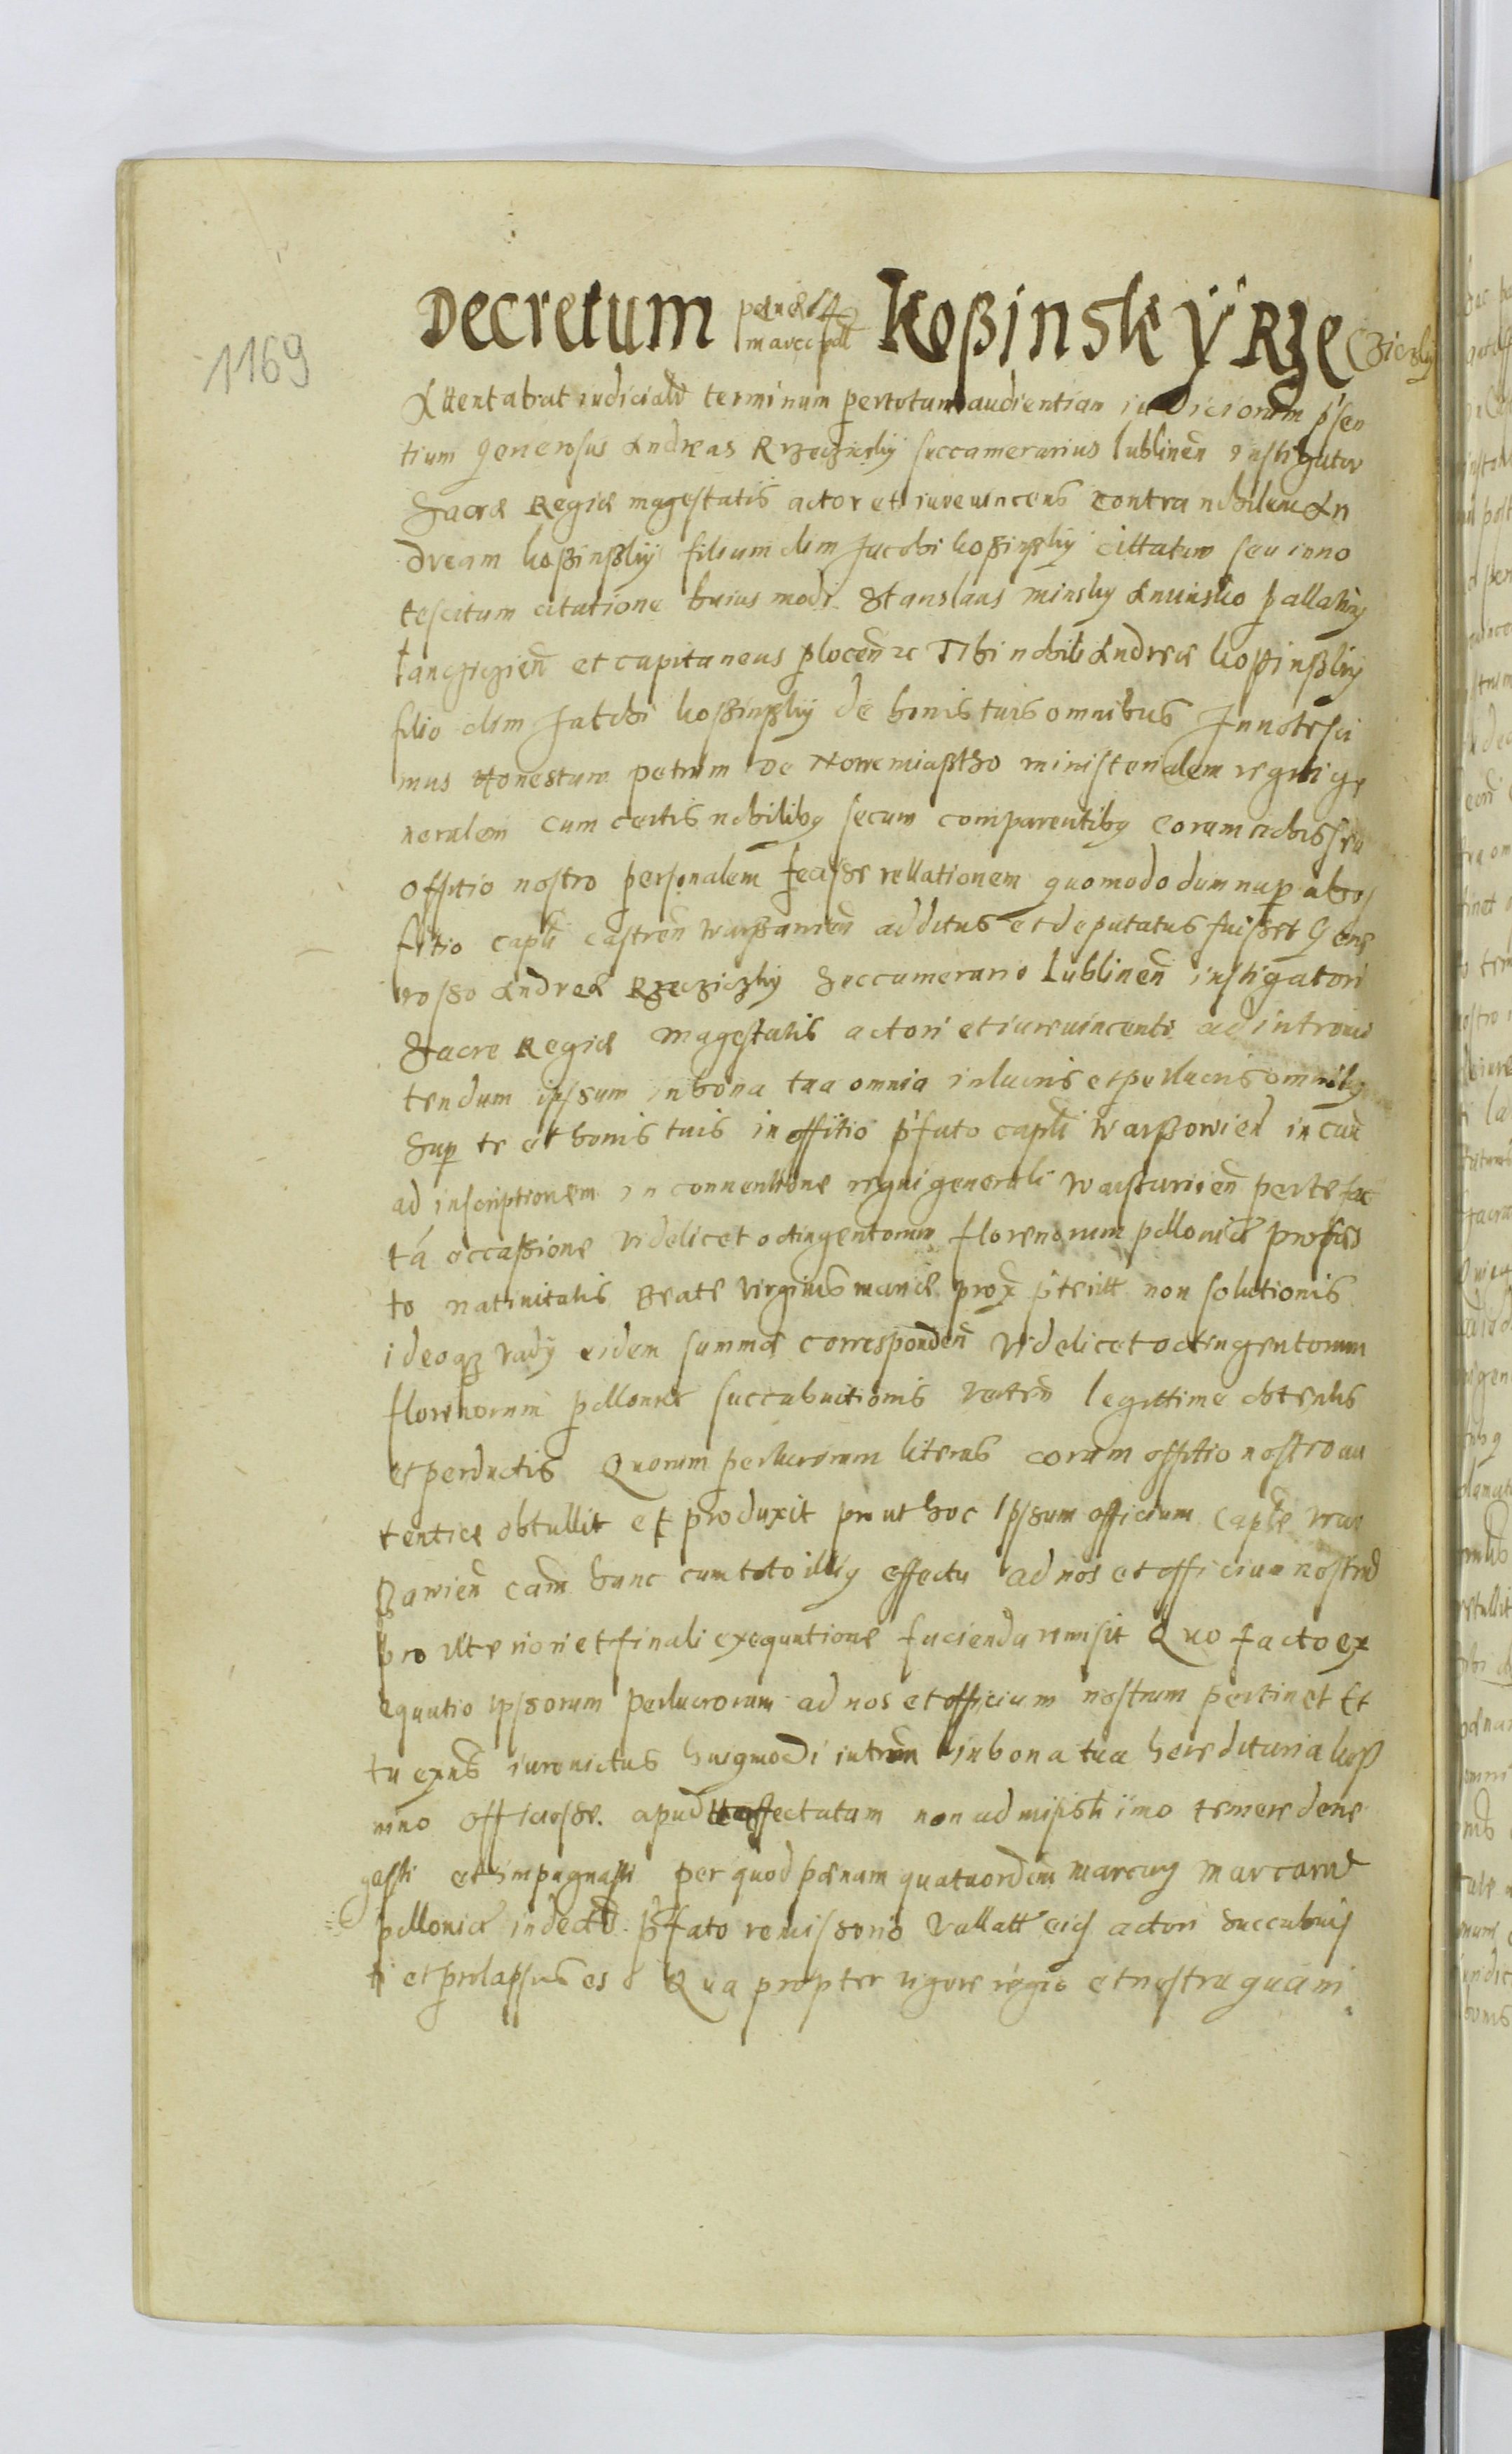 1169
Decretum pænæ 14 marc poll Koßinsky Rzecziczky
Attentabat iudicialr terminum per totam audientiam iudiciorum p'sen
tium Generosus Andreas Rzecziczky succamerarius lublineñ instigator
Sacræ Regiæ magestatis actor et iureuincens contra nobilem An
dream koßinßky filium olim Jacobi koßinßky cittatum seu inno
tescitum citatione huius modi. Stanslaus minsky Aminsko pallatinus
lanczicieñ et capitaneus ploceñ zc Tibi nobili Andreæ koßinßky
filio olim Jacobi koßinßky de bonis tuis omnibus Innotesci
mus Honestum petrum de Nowemiastho ministerialem regni ge
neralem cum certis nobilibq secum comparentibq coram nobis seu
offitio nostro personalem fecisse rellationem quomodo dum nup ab of
fitio capli castreñ warßawieñ additus et deputatus fuisset Gene
rosso Andreæ Rzecziczky Succamerario lublineñ instigatori
Sacre Regiæ magestatis actori et iureuincenti ad intromi
tendum ipsum in bona tua omnia in lucris et perlucris omnibq
Sup te et bonis tuis in offitio p'fato capli warßowieñ in cau
ad inscriptionem in conuentione regni generali warsauieñ per te fac
tá occassione videlicet octingentorum florenorum pollonicæ pro fes
to natiuitatis Beate virginis mariæ prox p'teritt non solutionis
ideoqz vadÿ eidem summæ correspondeñ videlicet octingentorum
florenorum pollonicæ succubuitionis legittime obtentis
et perductis Quorum perlucrorum literas coram offitio nostro au
tentice obtullit et produxit prout hoc Ipsum officium Caple war
ßawieñ cam hanc cum toto illiq effectu ad nos et officium nostrud
pro vlteriori et finali exequutione facienda remisit Quo facto ex
equutio ipsorum perlucrorum ad nos et officium nostrum pertinet Et
tu exns iureuictus huiqmodi intron in bona tua hereditaria koß
mino officiose. apud te affectatam non admisisti imo temere dene
gasti et impugnasti per quod pænam quatuordcim marcarq marcarud
pollonicæ in decto p'fato remissorio vallatt eid actori succubuis
ti et prolapsus es Qua propter rigore regio et nostra quam